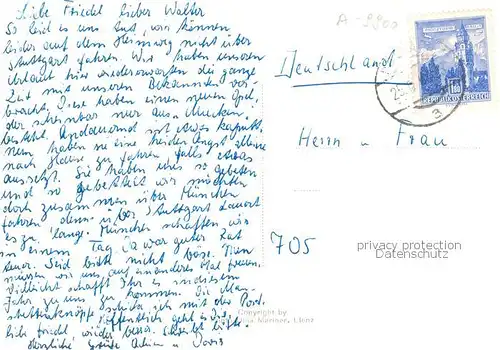 Liebe Friedel lieber Walter
So leid es uns tut, wir können
leider auf dem Heimweg nicht über
Stuttgart fahren. Wir haben unseren
Urlaub hier wiedererwarten die ganze
Zeit mit unseren Bekannten ver-
bracht. Diese haben einen neuen Opel,
der scheinbar nur aus Mucken
besteht. Andauernd ist etwas kaputt.
Nun haben sie eine Heiden Angst alleine
nach Hause zu fahren, falls etwas
aussetzt. Sie haben uns so gebeten
und so gebettelt wir möchten
doch zusammen über München
fahren denn über Stuttgart dauert
es zu lange. München schaffen wir
in einem Tag. Da war guter Rat
teuer. Seid bitte nicht böse. Nun
müssen wir uns auf anderes Mal freuen.
Vielleicht schafft Ihr es in diesem
Jahr zu uns zu kommen. Die Man-
schettenknöpfe schicke ich mit der Post.
Hoffentlich geht es Dir,
liebe Friedel, wieder besser. Schreibt bitte.
Herzliche Grüße
A-9900
Deutschland
REPUBLIK ÖSTERREICH
Herrn u Frau
705
privacy protection
Datenschutz
Copyright by
Mariner, Lienz